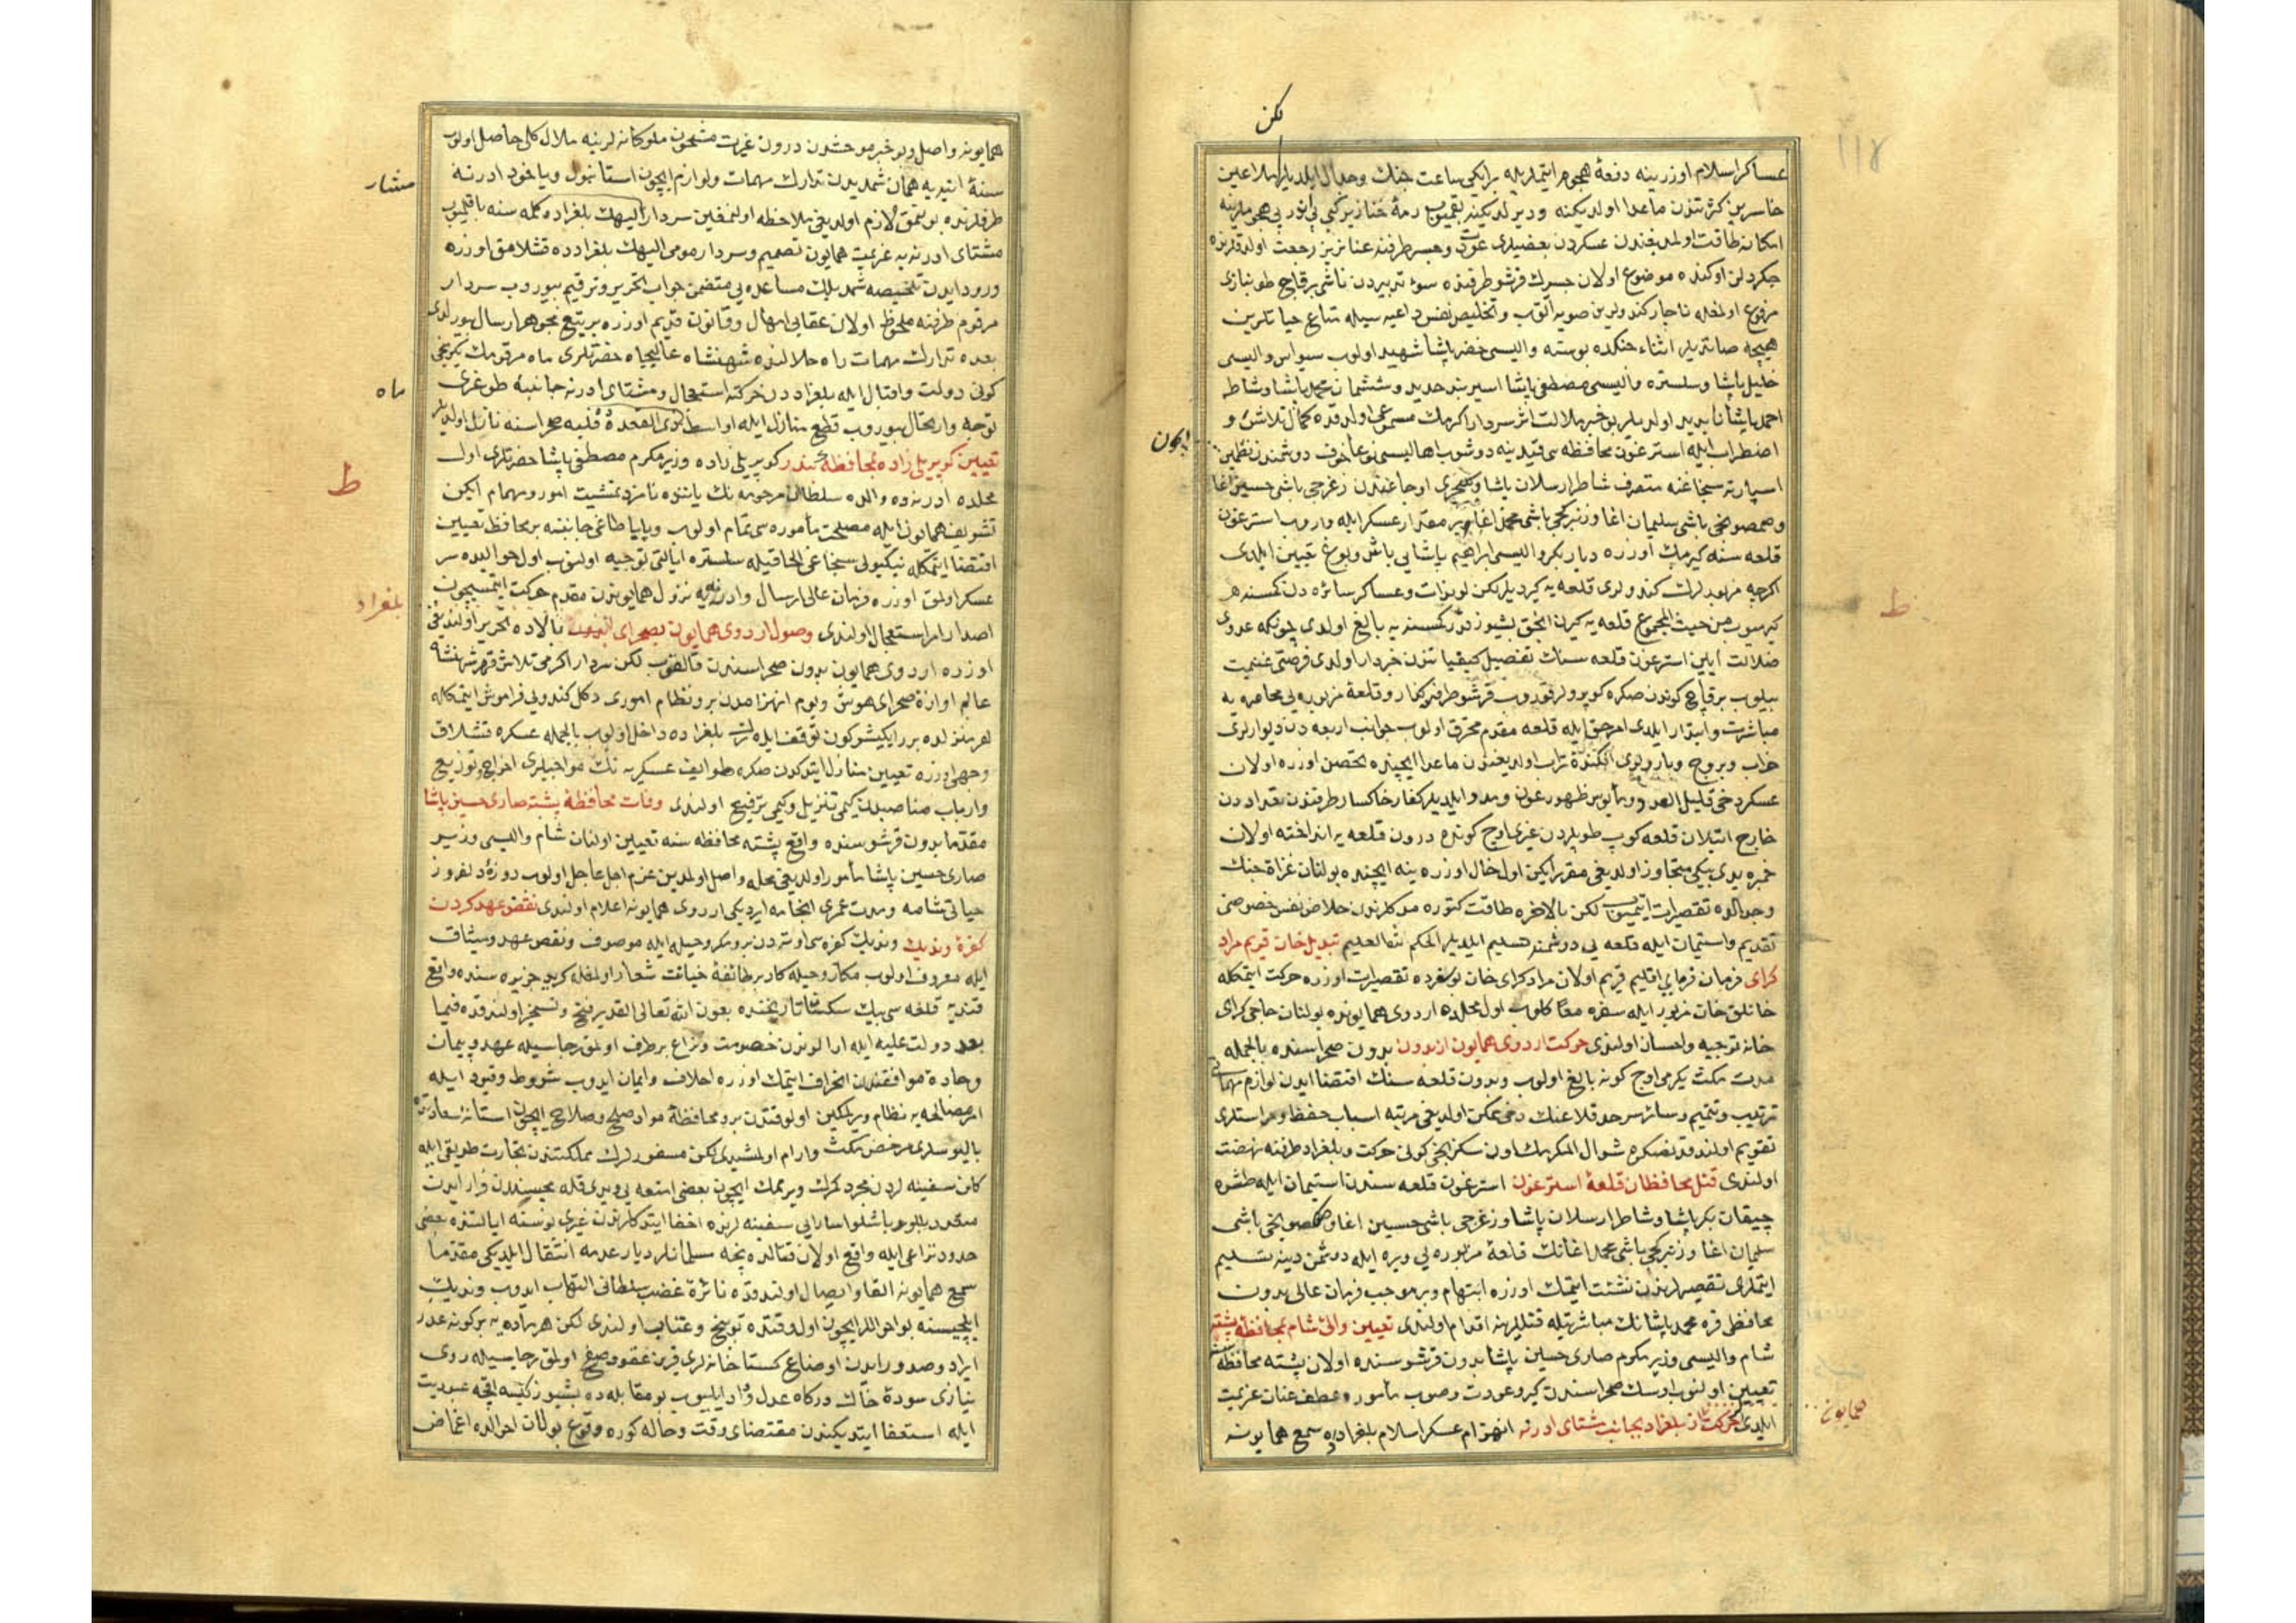 لكن
عساكر اسلام اوزرينه دفعةً هجوم ايتملريله بر ايكى ساعت جنك وجدال ايلديلر ملاعين
خاسرين كثرتندن ماعدا اولديكنه وديرلديكنه بقميوب رمهٔ خنازير كبى
امكانه طاقت اولمديغندن عسكردن بعضيلرى عودت وجسر طرفنه عنانريز رجعت اولدقلرنده
جكردلن اوكنده موضوع اولان جسرك قرشو طرفنده سوء تدبيردن ناشى برقاچ طونبازى
مرفوع اولمغله ناچار كندولرين صويه آتوب وتخليص نفس داعيه سيله متاع حياتلرين
هيچه صاتديلر اثناء جنكده بوسنه واليسى خضر پاشا شهيد اولوب سيواس واليسى
خليل پاشا وسلستره واليسى مصطفى پاشا اسير بند حديد وششمان محمد پاشا وشاطر
احمد پاشا ناپديد اولديلر بو خبر ملالت اثر سردار اكرمك مسموعى اولدقده كمال تلاش و
ايچون
اضطراب ايله استرغون محافظه سى قيدينه دوشوب اهاليسى نوعا خوف دوشمندن
اسپارته سنجاغنه متصرف شاطر ارسلان پاشا ويكيچرى اوجاغندن زغرجى باشى حسين اغا
وصمصونجى باشى سليمان اغا وزنبركجى باشى محمد اغا بر مقدار عسكر ايله واروب استرغون
قلعه سنه كيرمك اوزره دياربكر واليسى ابراهيم پاشايى باش وبوغ تعيين ايلدى
اكرچه مزبورلرك كندولرى قلعه يه كيرديلر لكن لوندات وعساكر سائره دن كمسنه
كيرميوب من حيث المجموع قلعه يه كيرن انجق بشيوز قدر كمسنه يه بالغ اولدى چونكه عدوى
ط
ضلالت آيين استرغون قلعه سنك تفصيل كيفياتندن خبردار اولدى فرصتى غنيمت
بيلوب برقاچ كوندن صكره كوپرولر قوروب قرشو طرفه كذار وقلعهٔ مزبوره يى محاصره يه
مباشرت وابتدار ايلدى امر حق ايله قلعه مقدم محترق اولوب جوانب اربعه دن ديوارلرى
خراب وبروج وبارولرى افكندهٔ تراب اولديغندن ماعدا ايچنده تحصن اوزره اولان
عسكر دخى قليل العدد ومأيوس ظهور عون ومدد ايلديلر كفار خاكسار طرفندن تعداددن
خارج آتيلان قلعه كوب طوپلردن غيرى اوچ كونده درون قلعه يه انداخته اولان
خمبره يدى بيكى متجاوز اولديغى مقرر ايكن اول حال اوزره ينه ايچنده بولنان غزاة جنك
وجدالده تقصيرات ايتميوب لكن بالاخره طاقت كتوره مدكلرندن خلاص نفس خصوصنى
تقديم واستيمان ايله قلعه يى دوشمنه تسليم ايلديلر الحكم لله العليم تبديل خان قريم مراد
كراى فرمان فرماى اقليم قريم اولان مراد كراى خان بو سفرده تقصيرات اوزره حركت ايتمكله
خانلق خان مزبور ايله سفره معاً كلوب اول محلده اردوى همايونده بولنان حاجى كراى
خانه توجيه واحسان اولندى حركت اردوى همايون از بدون بدون صحراسنده بالجمله
مدت مكث يكرمى اوچ كونه بالغ اولوب وبدون قلعه سنك اقتضا ايدن لوازم مهماتى
ترتيب وتتميم وسائر سرحد قلاعنك دخى ممكن اولديغى مرتبه اسباب حفظ وحراستلرى
تقويم اولندقدنصكره شوال المكرمك اون سكزنجى كونى حركت وبلغراد طرفنه نهضت
اولندى قتل محافظان قلعهٔ استرغون استرغون قلعه سندن استيمان ايله طشره
چيقان بكر پاشا وشاطر ارسلان پاشا وزغرجى باشى حسين اغا وصمصونجى باشى
سليمان اغا وزنبركجى باشى محمد اغانك قلعهٔ مزبوره يى ويره ايله دوشمن دينه تسليم
ايتملرى تقصيرلرندن نشئت ايتمك اوزره اتهام وبر موجب فرمان عالى بدون
محافظى قره محمد پاشانك مباشرتيله قتللرينه اقدام اولندى تعيين والئ شام بمحافظهٔ پشته
شام واليسى وزير مكرم صارى حسين پاشا بدون قرشوسنده اولان پشته محافظه سنه
تعيين اولنوب اوسك صحراسندن كيرو عودت وصوب مأموره عطف عنان عزيمت
همايون
ايلدى حركت از بلغراد بجانب مشتاى ادرنه انهزام عسكر اسلام بلغرادده سمع همايونه
همايونه واصل وبو خبر موحشدن درون غيرت مشحون ملوكانه لرينه ملال كلى حاصل اولوب
مشار
سنهٔ آتيه يه همان شمديدن تدارك مهمات ولوازم ايچون استانبول وياخود ادرنه
طرفلرنده بولنمق لازم اولديغى ملاحظه اولنمغين سردار اليهك بلغراده كلمه سنه باقلميوب
مشتاى ادرنه يه عزيمت همايون تصميم وسردار مومى اليهك بلغرادده قشلامق اوزره
ورود ايدن تلخيصه شمديلك مساعده يى متضمن جواب تحرير وترقيم بيوروب سردار
مرقوم طرفنه ملحوظ اولان عقابى امهال وقانون قديم اوزره بر تيغ مجوهر ارسال بيورلدى
بعده تدارك مهمات راه حلالنده شهنشاه عاليجاه حضرتلرى ماه مرقومك يكرمنجى
ماه
كونى دولت واقبال ايله بلغراددن حركته استعجال ومشتاى ادرنه جانبنه طوغرى
توجه وارتحال بيوروب قطع منازل ايله اواسط ذى القعدةده فلبه صحراسنه نازل اولديلر
تعيين كوپريلى زاده بمحافظهٔ بندر كوپريلى زاده وزير مكرم مصطفى پاشا حضرتلرى اول
ط
محلده ادرنه ده والده سلطان مرحومه نك ياننده نامزد تمشيت امور ومهام ايكن
تشريف همايون ايله مصلحت مأموره سى تمام اولوب وباباطاغى جانبنه بر محافظ تعيين
اقتضا ايتمكله نيكبولى سنجاغى الحاقيله سلستره ايالتى توجيه اولنوب اول حواليده سر
عسكر اولمق اوزره فرمان عالى ارسال وادرنه يه نزول همايوندن مقدم حركت ايتمسيچون
بلغراد
اصدار امر استعجال اولندى وصول اردوى همايون بصحراى بالاده تحرير اولنديغى
اوزره اردوى همايون بدون صحراسندن قالقوب لكن سردار اكرمى تلاش قهر شهنشاه
عالم آوارهٔ صحراى هوش ويوم انهزامدن برو نظام امورى دكل كندويى فراموش ايتمكله
هر منزلده برر ايكيشر كون توقف ايله بلغراده داخل اولوب بالجمله عسكره قشلاق
وجهى اوزره تعيين منازل ايتدكدن صكره طوائف عسكريه نك مواجبلرى اخراج وتوزيع
وارباب مناصبك كيمى تنزيل وكيمى ترفيع اولندى وفات محافظهٔ پشته صارى حسين پاشا
مقدما بدون قرشوسنده واقع پشته محافظه سنه تعيين اولنان شام واليسى وزير
صارى حسين پاشا مأمور اولديغى محله واصل اولمدين عزم اجل عاجل اولوب
حياتى شامه ومدت عمرى انجامه ايرديكى اردوى همايونه اعلام اولندى نقض عهد كردن
كفرهٔ ونديك ونديك كفره سى اوته دنبرو مكر وحيله ايله موصوف ونقض عهد وميثاق
ايله معروف اولوب مكار وحيله كار بر طائفهٔ خيانت شعار اولمغله كريد جزيره سنده واقع
قنديه قلعه سى بيك سكسان تاريخنده بعون الله تعالى القدير فتح وتسخير اولندقده فيما
بعد دولت عليه ايله ارالرندن خصومت ونزاع برطرف اولمق رجاسيله عهد وپيمان
وجادهٔ موافقتدن انحراف ايتمامك اوزره احلاف وايمان ايدوب شروط وقيود ايله
امر مصالحه يه نظام ويرلمكين اول وقتدن برو محافظهٔ مواد صلح وصلاح ايچون استانهٔ سعادتده
باليوسلرى مرخص مكث وآرام اولمشيدى لكن مسفورلرك مملكتندن تجارت طريقى ايله
كلن سفينه لردن مجرد كمرك ويرمامك ايچون بعضى امتعه يى ويدى قله محبسندن فرار ايدن
باشلو اسارايى سفينه لرنده اخفا ايتدكلرندن غيرى بوسنه ايالتنده بعض
حدود نزاعى ايله واقع اولان قتالده نيچه مسلمانلر ديار عدمه انتقال ايلديكى مقدما
سمع همايونه القا وايصال اولندقده نائرهٔ غضب سلطانى التهاب ايدوب ونديك
ايلچيسنه بو احواللر ايچون اول وقتده توبيخ وعتاب اولندى لكن هر ماده يه بر كونه عذر
ايراد وصدور ايدن اوضاع كستاخانه لرى قرين عفو وصفح اولمق رجاسيله روى
نيازى سودهٔ خاك دركاه عدل وداد ايليوب بو مقابله ده بشيوز كيسه اقچه عبوديت
ايله استعفا ايتديكندن مقتضاى وقت وحاله كوره وقوع بولان احوالده اغماض